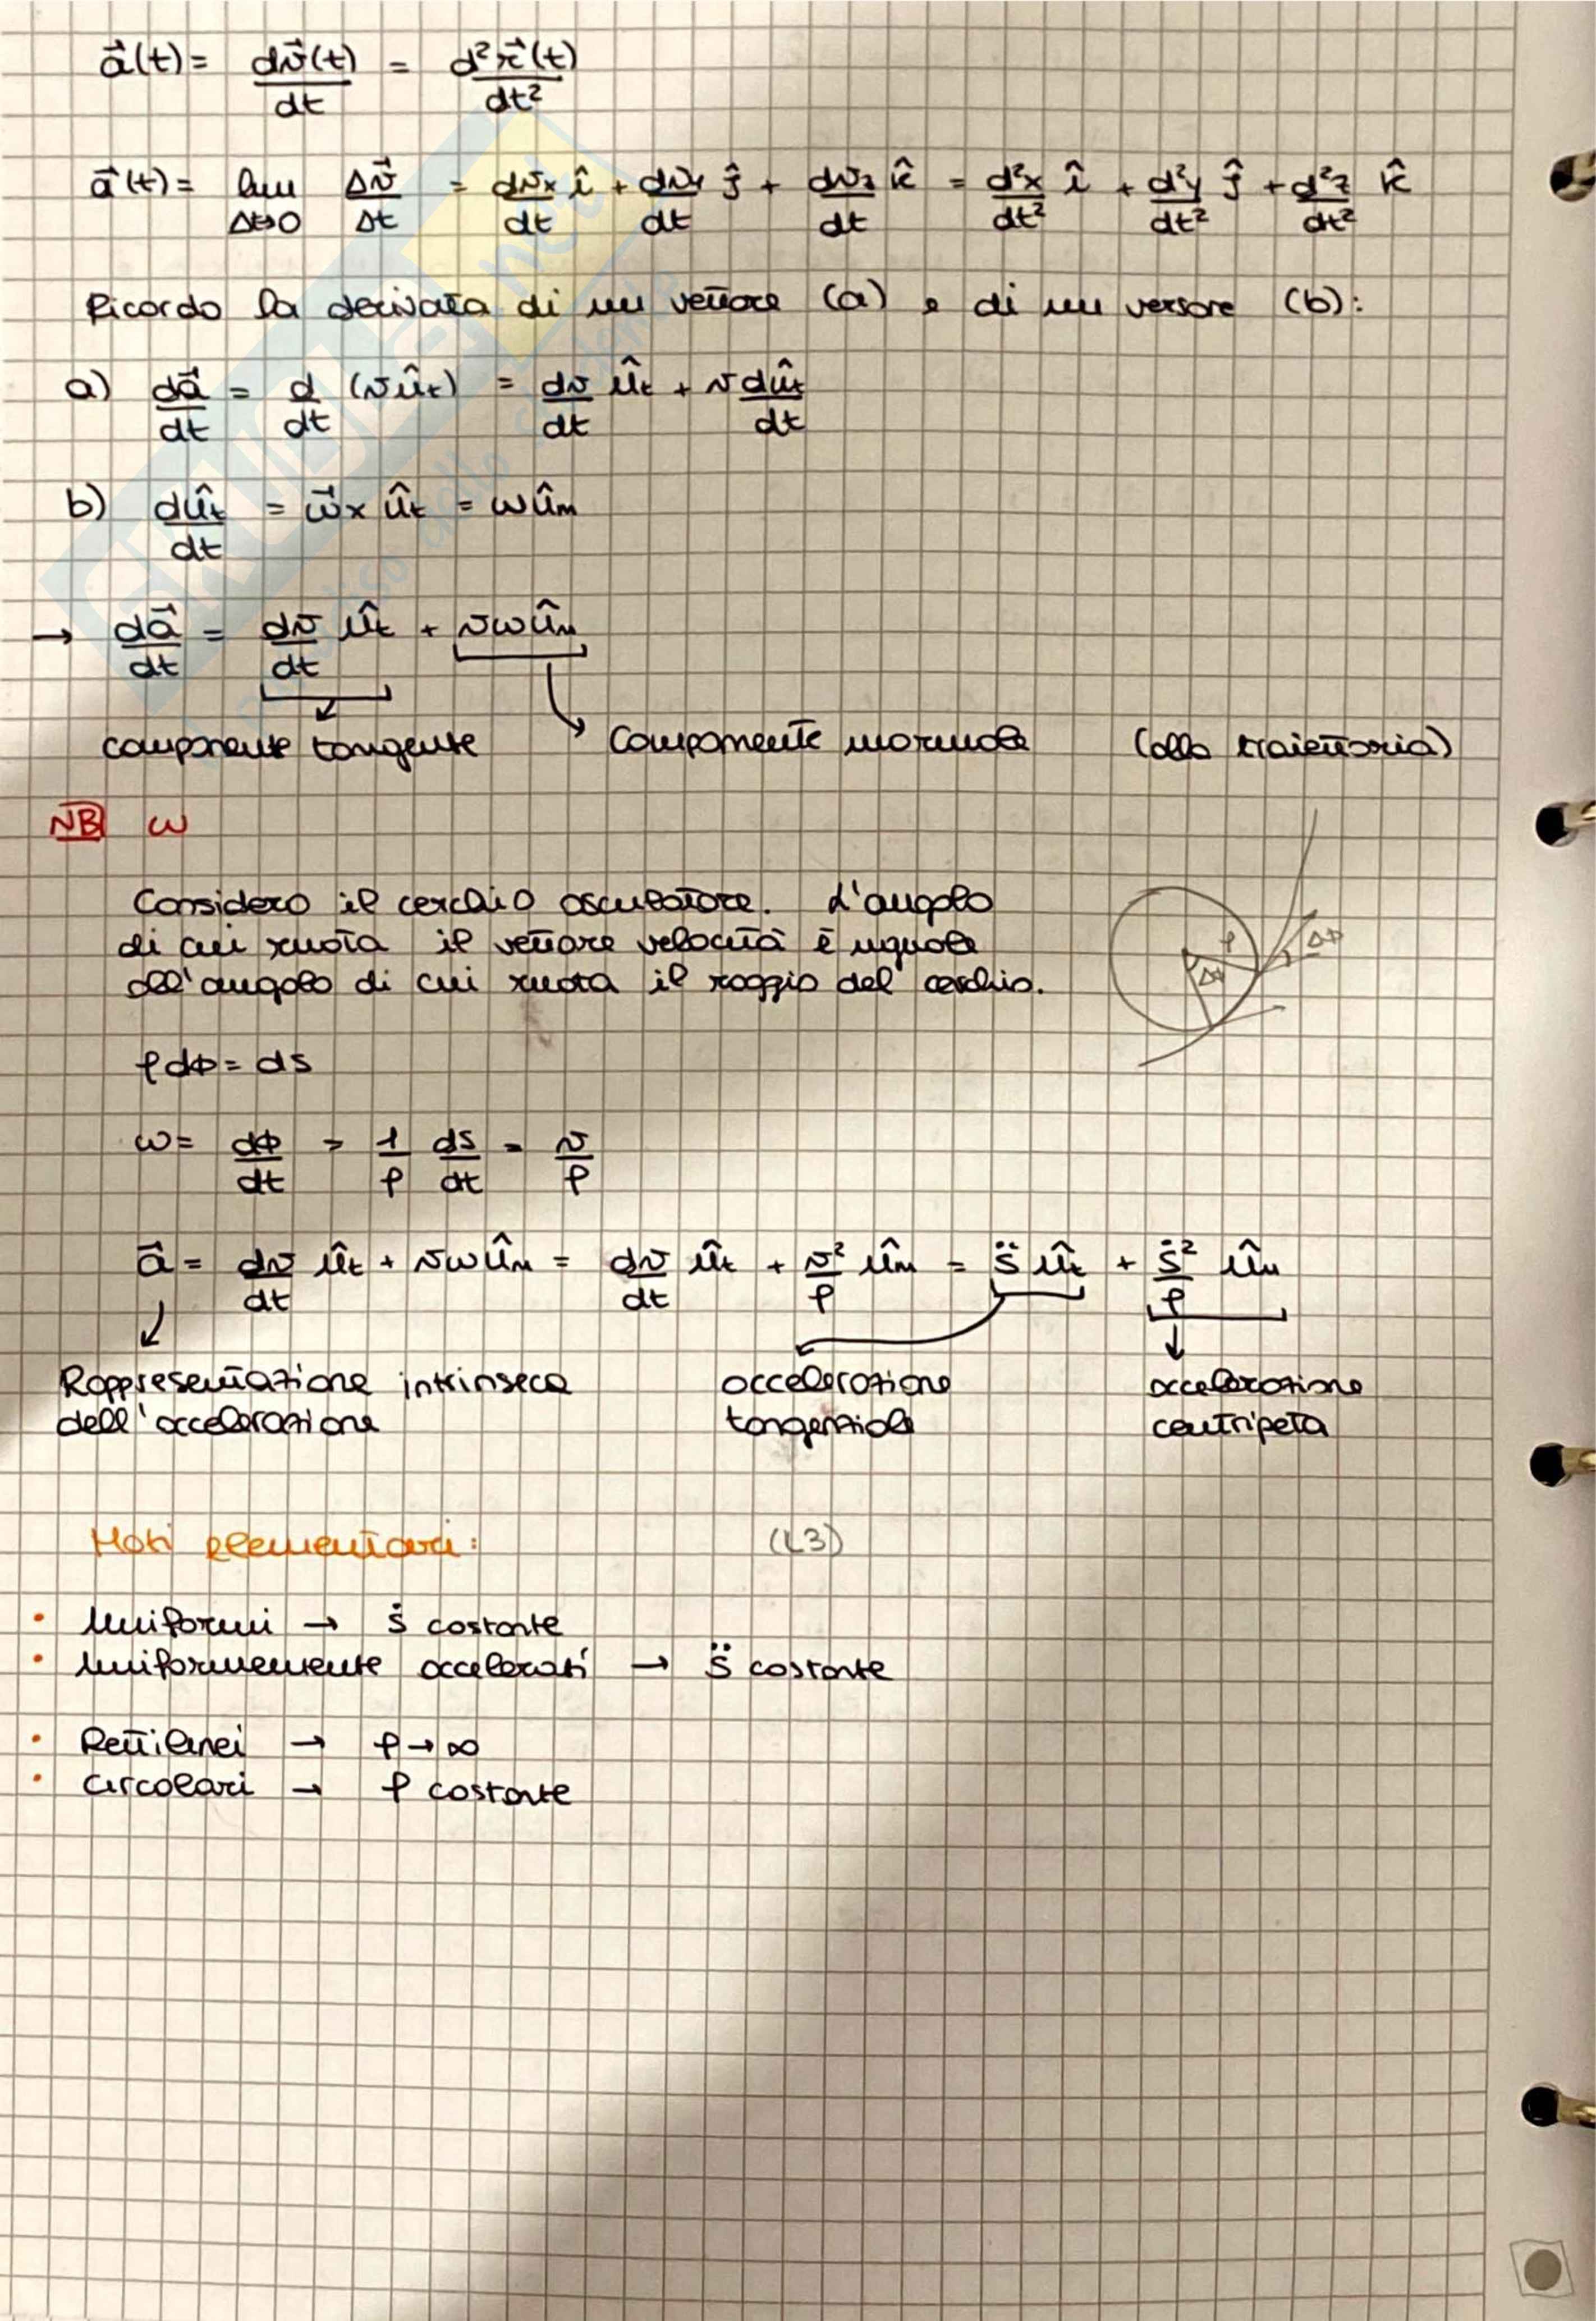 a⃗(t) = dv⃗(t)/dt = d²r⃗(t)/dt²
a⃗(t) = lim Δt→0 Δv⃗/Δt = dvx/dt î + dvy/dt ĵ + dvz/dt k̂ = d²x/dt² î + d²y/dt² ĵ + d²z/dt² k̂
Ricordo la derivata di un vettore (a) e di un versore (b):
a) da⃗/dt = d/dt (vût) = dv/dt ût + v dût/dt
b) dût/dt = ω⃗ x ût = ωûn
→ da⃗/dt = dv/dt ût + vωûn
componente tangente componente normale (alla traiettoria)
NB ω
Considero il cerchio osculatore. L'angolo
di cui ruota il vettore velocità è uguale
all'angolo di cui ruota il raggio del cerchio.
ρ Δφ Δφ
ρdφ = ds
ω = dφ/dt = 1/ρ ds/dt = v/ρ
a⃗ = dv/dt ût + vωûn = dv/dt ût + v²/ρ ûn = s̈ ût + ṡ²/ρ ûn
Rappresentazione intrinseca accelerazione accelerazione
dell'accelerazione tangenziale centripeta
Moti elementari: (L3)
• Uniformi → ṡ costante
• Uniformemente accelerati → s̈ costante
• Rettilinei → ρ→∞
• Circolari → ρ costante